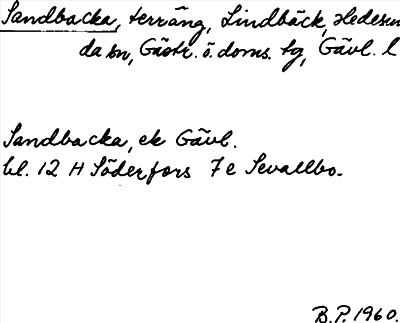 Sandbacka, terräng, Lindbäck, Hedesun
da sn, Gästr. ö. doms. tg, Gävl. l
Sandbacka, ek Gävl.
bl. 12 H Söderfors 7 e Sevallbo.
B.P. 1960.